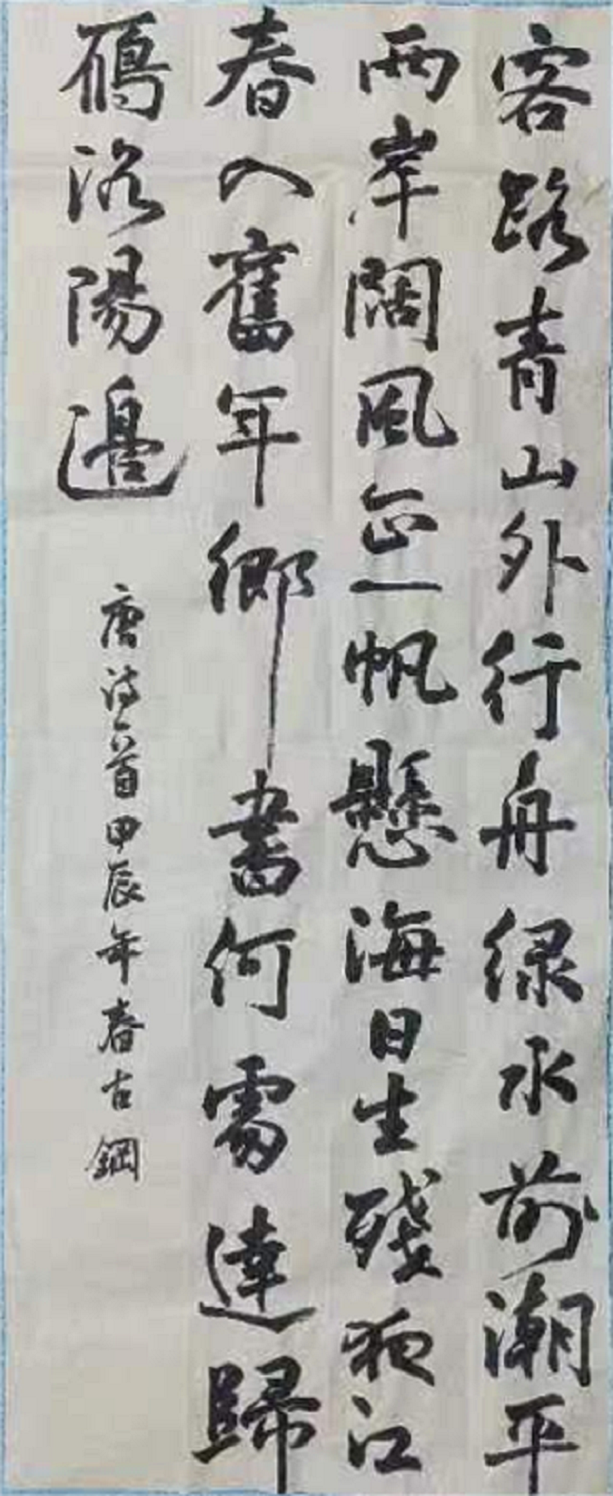 客路青山外行舟绿水前潮平
两岸闊風正一帆懸海日生殘夜江
春入舊年鄉書何處達歸
鴈洛陽邊
唐诗一首甲辰年春古鋼